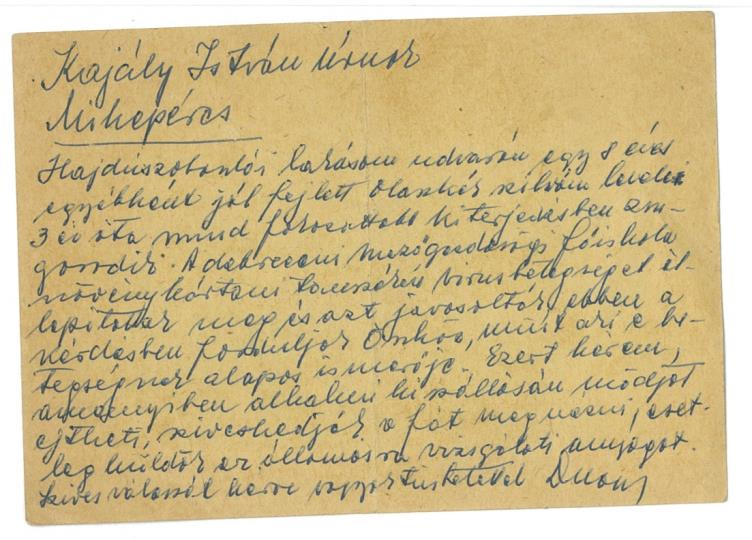 Kajály István Úrnak
Mikepércs
Hajdúszoboszlói lakásom udvarán egy 8 éves
egyébként jól fejlett olaszkék szilvám levelei
3 év óta mind fokozottabb kiterjedésben
A debreceni mezőgazdasági főiskola
növénykórtani tanszékén vírusbetegséget ál-
lapítottak meg és azt javasolták ebben a
kérdésben forduljak Önhöz, mint aki e be-
tegségnek alapos ismerője. Ezért kérem,
amennyiben alkalmi kiszállásán módját
ejtheti, szíveskedjék a fát megnézni, eset-
leg küldök az állomásra vizsgálati anyagot.
Szíves válaszát kérve vagyok tisztelettel